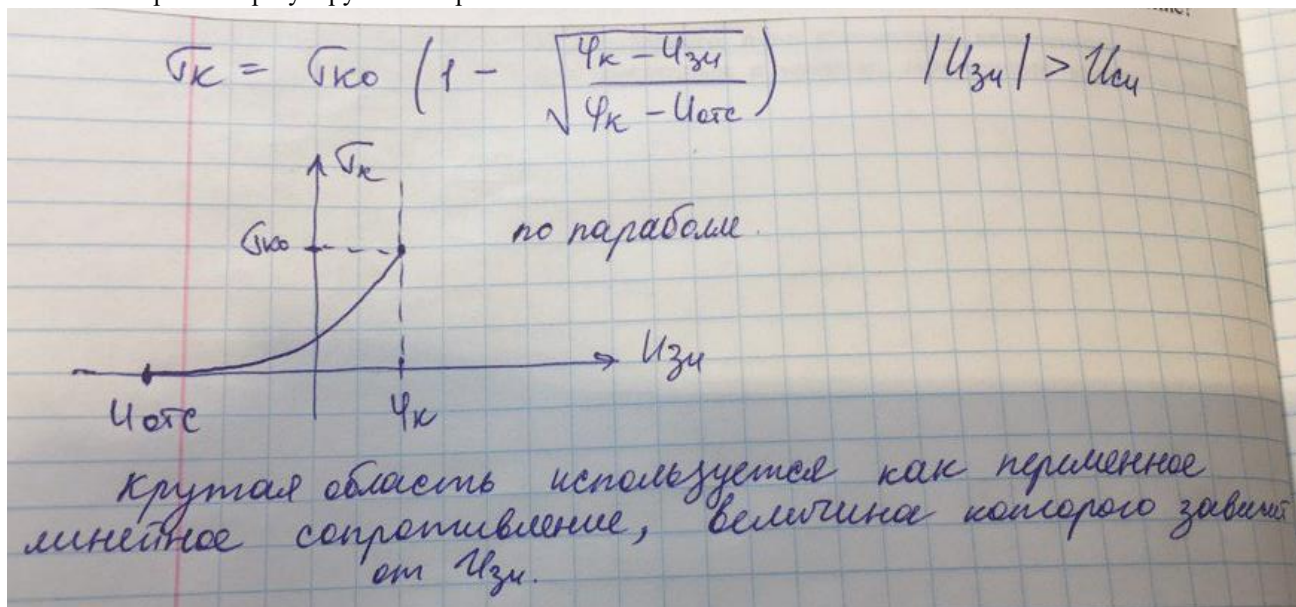 σк = σк0 (1 - √((φк - Uзи)/(φк - Uотс))) |Uзи| > Uси
σк
σк0
по параболе.
Uзи
Uотс φк
Крутая область используется как переменное
линейное сопротивление, величина которого зависит
от Uзи.